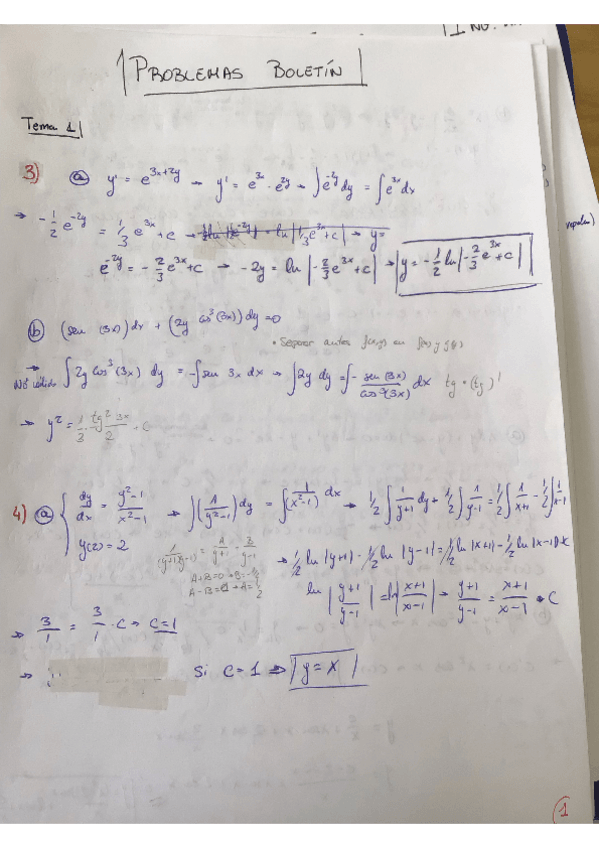 1 ING.
PROBLEMAS BOLETÍN
Tema 1
3) a) y' = e^{3x+2y} → y' = e^{3x} · e^{2y} → ∫e^{-2y} dy = ∫e^{3x} dx
→ -1/2 e^{-2y} = 1/3 e^{3x} + c → y =
e^{-2y} = -2/3 e^{3x} + c → -2y = ln |-2/3 e^{3x} + c| → y = -1/2 ln |-2/3 e^{3x} + c|
b) (sen (3x)) dx + (2y cos³(3x)) dy = 0
• Separar antes f(x,y) en f(x) y g(y)
→ ∫2y cos³(3x) dy = -∫sen 3x dx → ∫2y dy = ∫- sen(3x)/cos³(3x) dx tg · (tg)'
No válido
→ y² = 1/3 · tg² 3x/2 + C
4) a) { dy/dx = y²-1/x²-1 → ∫(1/y²-1) dy = ∫1/(x²-1) dx → 1/2 ∫1/y+1 dy + 1/2 ∫1/y-1 = 1/2 ∫1/x+1 - 1/2 ∫1/x-1
y(2) = 2
1/(y+1)(y-1) = A/y+1 + B/y-1
→ 1/2 ln |y+1| - 1/2 ln |y-1| = 1/2 ln |x+1| - 1/2 ln |x-1| + K
ln |y+1/y-1| = ln |x+1/x-1| → y+1/y-1 = x+1/x-1 · C
→ 3/1 = 3/1 · C → C=1
→ Si C = 1 → y = x
1